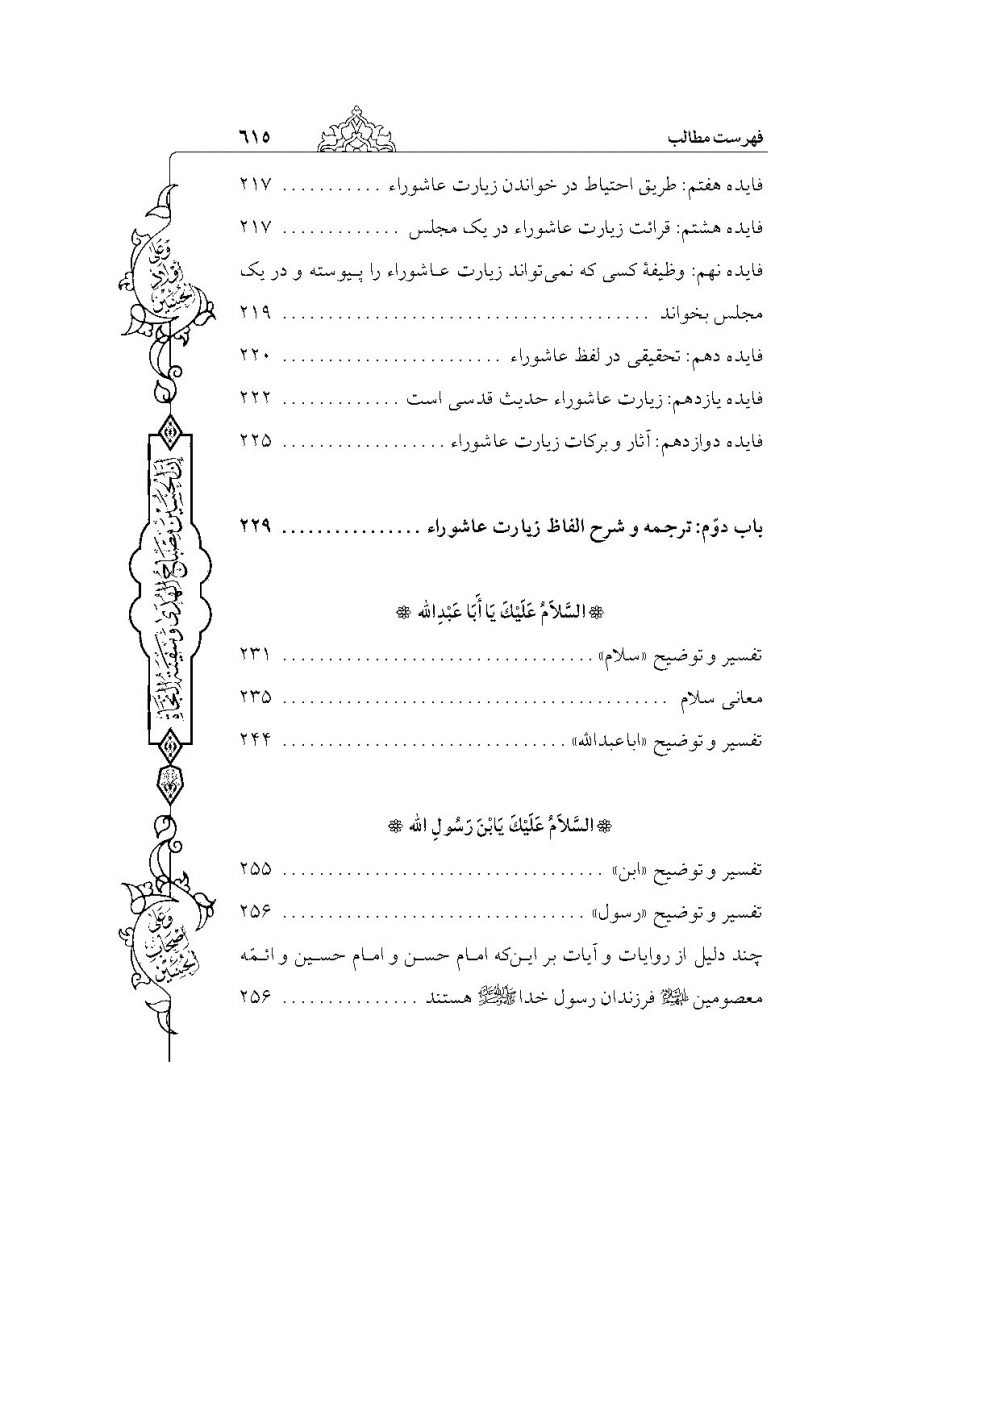 فهرست مطالب ٦١٥
فایده هفتم: طریق احتیاط در خواندن زیارت عاشوراء . . . . . . . . . . . ۲۱۷
فایده هشتم: قرائت زیارت عاشوراء در یک مجلس . . . . . . . . . . . . . ۲۱۷
فایده نهم: وظیفهٔ کسی که نمی‌تواند زیارت عـاشوراء را پـیوسته و در یک
مجلس بخواند . . . . . . . . . . . . . . . . . . . . . . . . . . . . . . . . . . . . . . . . ۲۱۹
فایده دهم: تحقیقی در لفظ عاشوراء . . . . . . . . . . . . . . . . . . . . . . . . ۲۲۰
فایده یازدهم: زیارت عاشوراء حدیث قدسی است . . . . . . . . . . . . . ۲۲۲
فایده دوازدهم: آثار و برکات زیارت عاشوراء . . . . . . . . . . . . . . . . . . ۲۲۵
باب دوّم: ترجمه و شرح الفاظ زیارت عاشوراء . . . . . . . . . . . . . . . . ۲۲۹
❁ السَّلاَمُ عَلَیْكَ یَا أَبَا عَبْدِالله ❁
تفسیر و توضیح «سلام» . . . . . . . . . . . . . . . . . . . . . . . . . . . . . . . . . . ۲۳۱
معانی سلام . . . . . . . . . . . . . . . . . . . . . . . . . . . . . . . . . . . . . . . . . . ۲۳۵
تفسیر و توضیح «اباعبدالله» . . . . . . . . . . . . . . . . . . . . . . . . . . . . . . . ۲۴۴
❁ السَّلاَمُ عَلَیْكَ یَابْنَ رَسُولِ الله ❁
تفسیر و توضیح «ابن» . . . . . . . . . . . . . . . . . . . . . . . . . . . . . . . . . . . ۲۵۵
تفسیر و توضیح «رسول» . . . . . . . . . . . . . . . . . . . . . . . . . . . . . . . . . ۲۵۶
چند دلیل از روایات و آیات بر ایـن‌که امـام حسـن و امـام حسـین و ائـمّه
معصومین فرزندان رسول خدا هستند . . . . . . . . . . . . . . . ۲۵۶
وَعَلی
أَوْلادِ
الْحُسَیْنِ
إِنَّ الْحُسَیْنَ مِصْبَاحُ الْهُدیٰ وَ سَفِینَةُ النَّجَاةِ
وَعَلی
أَصْحَابِ
الْحُسَیْنِ